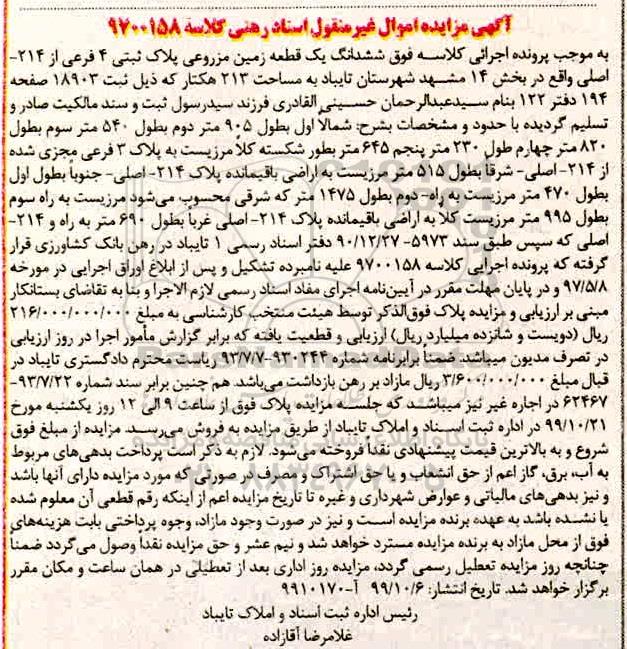 آگهی مزایده اموال غیرمنقول اسناد رهنی کلاسه ۹۷۰۰۱۵۸
به موجب پرونده اجرائی کلاسه فوق ششدانگ یک قطعه زمین مزروعی پلاک ثبتی ۴ فرعی از ۲۱۴-
اصلی واقع در بخش ۱۴ مشهد شهرستان تایباد به مساحت ۲۱۳ هکتار که ذیل ثبت ۱۸۹۰۳ صفحه
۱۹۴ دفتر ۱۲۲ بنام سیدعبدالرحمان حسینی القادری فرزند سیدرسول ثبت و سند مالکیت صادر و
تسلیم گردیده با حدود و مشخصات بشرح: شمالا اول بطول ۹۰۵ متر دوم بطول ۵۴۰ متر سوم بطول
۸۲۰ متر چهارم طول ۲۳۰ متر پنجم ۶۴۵ متر بطور شکسته کلا مرزیست به پلاک ۳ فرعی مجزی شده
از ۲۱۴- اصلی- شرقاً بطول ۵۱۵ متر مرزیست به اراضی باقیمانده پلاک ۲۱۴- اصلی- جنوباً بطول اول
بطول ۴۷۰ متر مرزیست به راه- دوم بطول ۱۴۷۵ متر که شرقی محسوب می‌شود مرزیست به راه سوم
بطول ۹۹۵ متر مرزیست کلا به اراضی باقیمانده پلاک ۲۱۴- اصلی غرباً بطول ۶۹۰ متر به راه و ۲۱۴-
اصلی که سپس طبق سند ۵۹۷۳- ۹۰/۱۲/۲۷ دفتر اسناد رسمی ۱ تایباد در رهن بانک کشاورزی قرار
گرفته که پرونده اجرایی کلاسه ۹۷۰۰۱۵۸ علیه نامبرده تشکیل و پس از ابلاغ اوراق اجرایی در مورخه
۹۷/۵/۸ و در پایان مهلت مقرر در آیین‌نامه اجرای مفاد اسناد رسمی لازم الاجرا و بنا به تقاضای بستانکار
مبنی بر ارزیابی و مزایده پلاک فوق‌الذکر توسط هیئت منتخب کارشناسی به مبلغ ۲۱۶/۰۰۰/۰۰۰/۰۰۰
ریال (دویست و شانزده میلیارد ریال) ارزیابی و قطعیت یافته که برابر گزارش مأمور اجرا در روز ارزیابی
در تصرف مدیون میباشد. ضمناً برابرنامه شماره ۹۳۰۲۴۴-۹۳/۷/۷ ریاست محترم دادگستری تایباد در
قبال مبلغ ۳/۶۰۰/۰۰۰/۰۰۰ ریال مازاد بر رهن بازداشت می‌باشد. هم چنین برابر سند شماره ۹۳/۷/۲۲-
۶۲۴۶۷ در اجاره غیر نیز میباشند که جلسه مزایده پلاک فوق از ساعت ۹ الی ۱۲ روز یکشنبه مورخ
۹۹/۱۰/۲۱ در اداره ثبت اسناد و املاک تایباد از طریق مزایده به فروش می‌رسد. مزایده از مبلغ فوق
شروع و به بالاترین قیمت پیشنهادی نقداً فروخته می‌شود. لازم به ذکر است پرداخت بدهی‌های مربوط
به آب، برق، گاز اعم از حق انشعاب و یا حق اشتراک و مصرف در صورتی که مورد مزایده دارای آنها باشد
و نیز بدهی‌های مالیاتی و عوارض شهرداری و غیره تا تاریخ مزایده اعم از اینکه رقم قطعی آن معلوم شده
یا نشده باشد به عهده برنده مزایده است و نیز در صورت وجود مازاد، وجوه پرداختی بابت هزینه‌های
فوق از محل مازاد به برنده مزایده مسترد خواهد شد و نیم عشر و حق مزایده نقداً وصول می‌گردد ضمناً
چنانچه روز مزایده تعطیل رسمی گردد، مزایده روز اداری بعد از تعطیلی در همان ساعت و مکان مقرر
برگزار خواهد شد. تاریخ انتشار: ۹۹/۱۰/۶ آ-۹۹۱۰۱۷۰
رئیس اداره ثبت اسناد و املاک تایباد
غلامرضا آقازاده